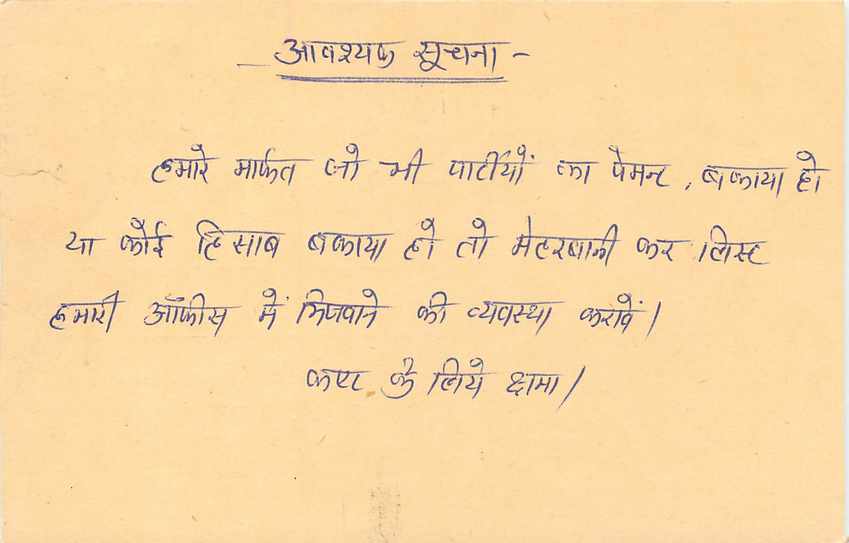 - आवश्यक सूचना -
हमारे मार्फत जो भी पार्टीयों का पेमन्ट, बकाया हो
या कोई हिसाब बकाया हो तो मेहरबानी कर लिस्ट
हमारी ऑफीस में भिजवाने की व्यवस्था करावें।
कष्ट के लिये क्षमा।